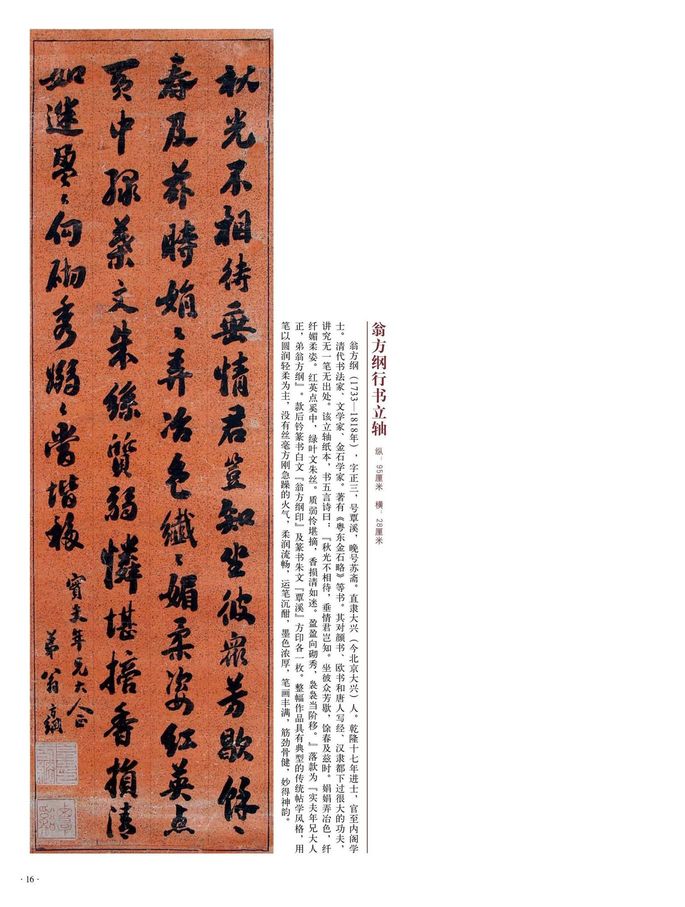 翁方纲行书立轴
纵：95厘米 横：28厘米
翁方纲（1733—1818年），字正三，号覃溪，晚号苏斋。直隶大兴（今北京大兴）人。乾隆十七年进士，官至内阁学
士。清代书法家、文学家、金石学家。著有《粤东金石略》等书。其对颜书、欧书和唐人写经、汉隶都下过很大的功夫，
讲究无一笔无出处。该立轴纸本，书五言诗曰，『秋光不相待，垂情君岂知。坐彼众芳歇，馀春及兹时。娟娟弄冶色，纤
纤媚柔姿。红英点奚中，绿叶文朱丝。质弱怜堪摘，香损清如迷。盈盈向砌秀，袅袅当阶移。』落款为『实夫年兄大人
正，弟翁方纲』。款后钤篆书白文『翁方纲印』及篆书朱文『覃溪』方印各一枚。整幅作品具有典型的传统帖学风格，用
笔以圆润轻柔为主，没有丝毫方刚急躁的火气，柔润流畅，运笔沉酣，墨色浓厚，笔画丰满，筋劲骨健，妙得神韵。
秋光不相待垂情君豈知坐彼眾芳歇餘
春及茲時娟々弄冶色纖々媚柔姿紅英点
奚中綠葉文朱絲質弱憐堪摘香損清
如迷盈々向砌秀嫋々當堦移
實夫年兄大人正
弟翁方綱
·16·